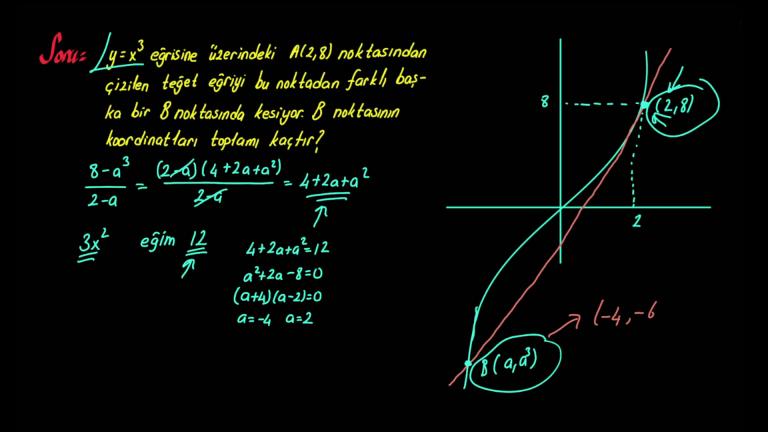 Soru= y=x³ eğrisine üzerindeki A(2,8) noktasından
çizilen teğet eğriyi bu noktadan farklı baş-
ka bir B noktasında kesiyor. B noktasının
koordinatları toplamı kaçtır?
8-a³ / 2-a = (2-a)(4+2a+a²) / 2-a = 4+2a+a²
3x² eğim 12
4+2a+a²=12
a²+2a-8=0
(a+4)(a-2)=0
a=-4 a=2
8
(2,8)
2
(-4,-6
B(a,a³)